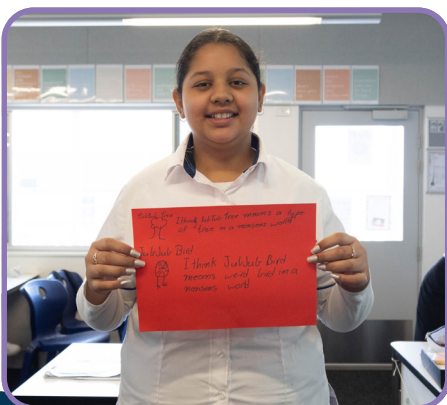 TumTum Tree
I think TumTum Tree means a type
of tree in a nonsense world
JubJub Bird
I think JubJub Bird
means weird bird in a
nonsense world